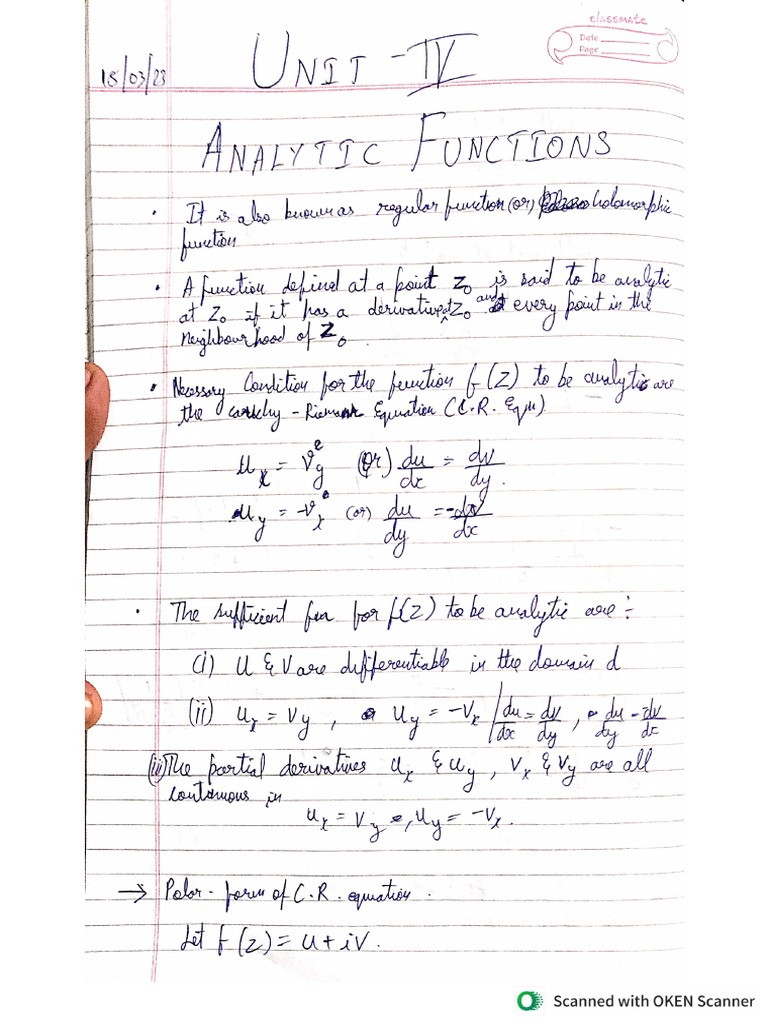 classmate
Date
Page
18/03/23
UNIT - IV
ANALYTIC FUNCTIONS
• It is also known as regular function (or) holomorphic
function
• A function defind at a point Z₀ is said to be analytic
at Z₀ if it has a derivative at Z₀ and every point in the
Neighbourhood of Z₀.
• Necessary Condition for the function f(Z) to be analytic are
the - Equation (C.R. Eqn)
u_x = v_y (or) du/dx = dv/dy.
u_y = -v_x (or) du/dy = -dv/dx
• The sufficient for f(z) to be analytic are :-
(i) U & V are differentiable in the domain d
(ii) u_x = v_y , u_y = -v_x / du/dx = dv/dy , du/dy = -dv/dx
(iii) The partial derivatives u_x & u_y , v_x & v_y are all
in
u_x = v_y , u_y = -v_x.
→ Polar - form of C.R. equation.
Let f(z) = u + iv.
Scanned with OKEN Scanner